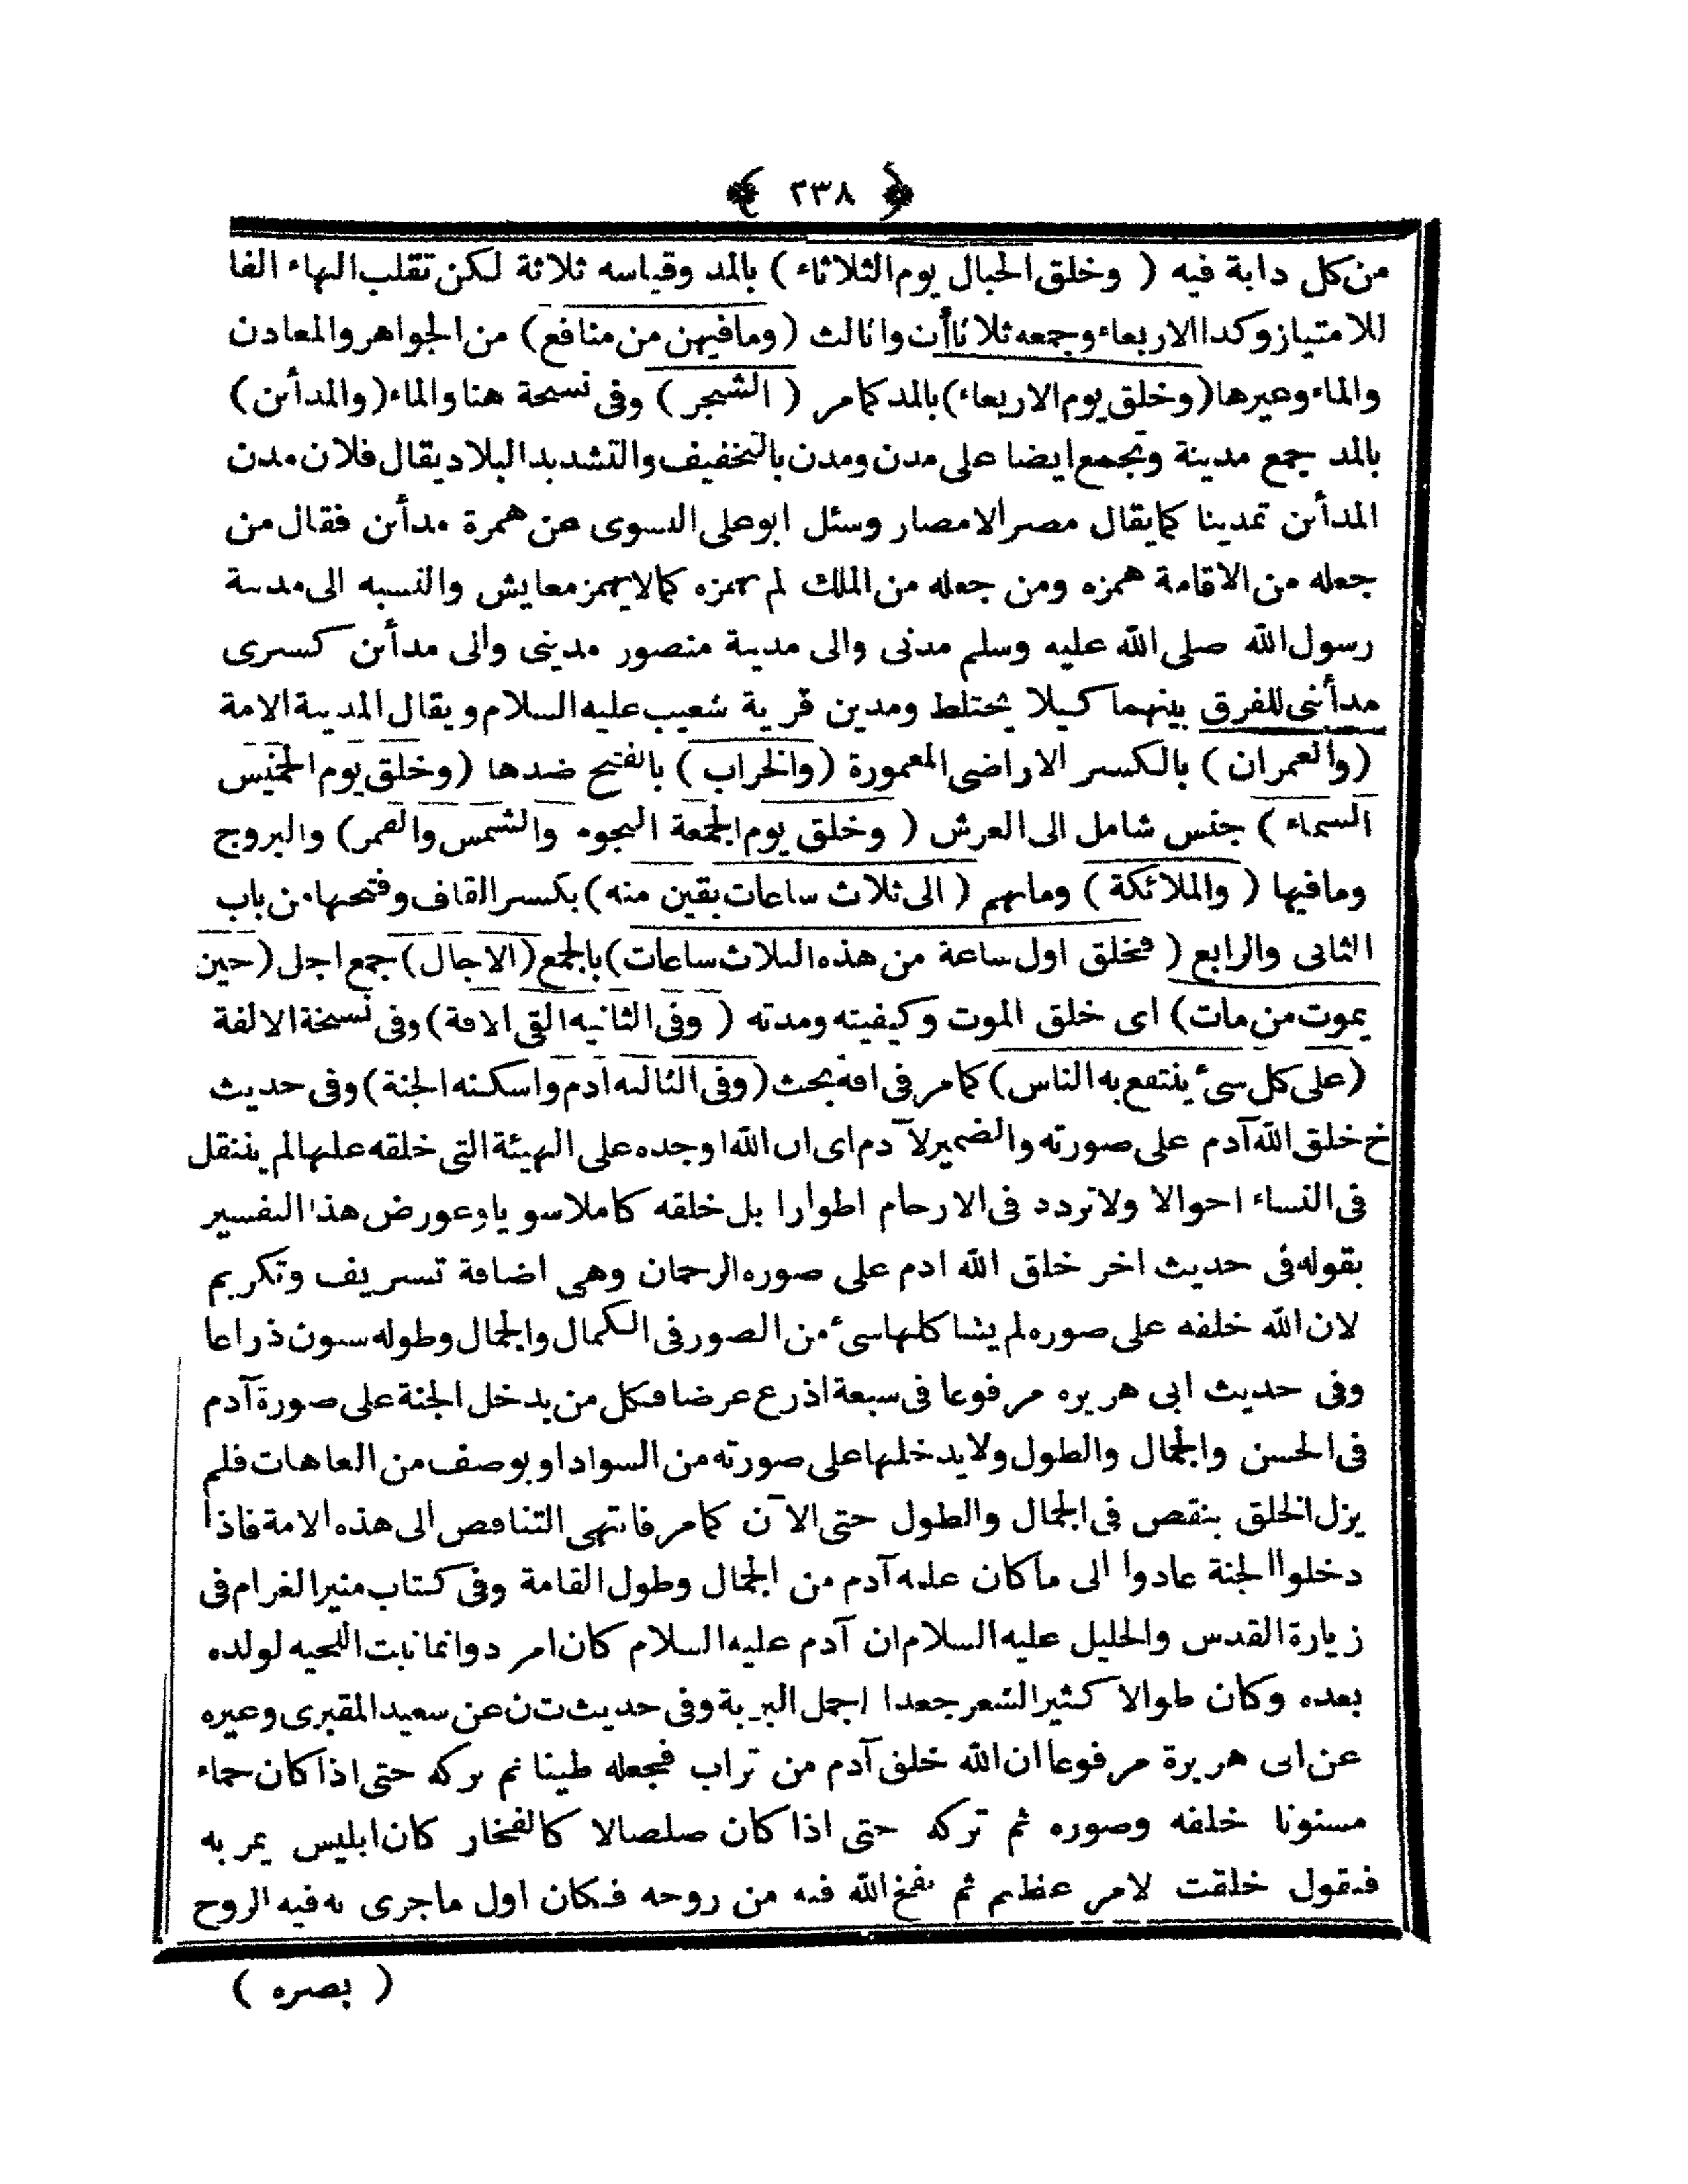 ﴿ ٢٣٨ ﴾
من كل دابة فيه ( وخلق الجبال يوم الثلاثاء ) بالمد وقياسه ثلاثة لكن تقلب الهاء الفا
للامتياز وكدا الاربعاء وجمعه ثلاثاأت واثالث ( ومافيهن من منافع ) من الجواهر والمعادن
والماء وغيرها ( وخلق يوم الاربعاء ) بالمد كمامر ( الشجر ) وفى نسخة هنا والماء ( والمدأن )
بالمد جمع مدينة وتجمع ايضا على مدن ومدن بالتخفيف والتشديد البلاد يقال فلان مدن
المدأن تمدينا كمايقال مصر الامصار وسئل ابوعلى النسوى عن همزة مدأن فقال من
جعله من الاقامة همزه ومن جعله من الملك لم يهمزه كمالايهمز معايش والنسبه الى مدينة
رسول الله صلى الله عليه وسلم مدنى والى مدينة منصور مدينى والى مدأن كسرى
مدأنى للفرق بينهما كيلا يختلط ومدين قرية شعيب عليه السلام ويقال المدينة الامة
( والعمران ) بالكسر الاراضى المعمورة ( والخراب ) بالفتح ضدها ( وخلق يوم الخميس
السماء ) جنس شامل الى العرش ( وخلق يوم الجمعة النجوم والشمس والقمر ) والبروج
ومافيها ( والملائكة ) ومابهم ( الى ثلاث ساعات بقين منه ) بكسر القاف وفتحها من باب
الثانى والرابع ( فخلق اول ساعة من هذه الثلاث ساعات ) بالجمع ( الاجال ) جمع اجل ( حين
يموت من مات ) اى خلق الموت وكيفيته ومدته ( وفى الثانيه القى الافة ) وفى نسخة الالفة
( على كل شىء ينتفع به الناس ) كمامر فى افة بحث ( وفى الثالثه ادم واسكنه الجنة ) وفى حديث
خ خلق الله آدم على صورته والضمير لآدم اى ان الله اوجده على الهيئة التى خلقه عليها لم ينتقل
فى النساء احوالا ولاتردد فى الارحام اطوارا بل خلقه كاملا سويا وعورض هذا التفسير
بقوله فى حديث اخر خلق الله ادم على صوره الرحمان وهى اضافة تشريف وتكريم
لان الله خلقه على صوره لم يشاكلها شىء من الصور فى الكمال والجمال وطوله ستون ذراعا
وفى حديث ابى هريره مرفوعا فى سبعة اذرع عرضا فكل من يدخل الجنة على صورة آدم
فى الحسن والجمال والطول ولايدخلها على صورته من السواد او بوصف من العاهات فلم
يزل الخلق ينقص فى الجمال والطول حتى الآن كمامر فانتهى التناقص الى هذه الامة فاذا
دخلوا الجنة عادوا الى ماكان عليه آدم من الجمال وطول القامة وفى كتاب منير الغرام فى
زيارة القدس والخليل عليه السلام ان آدم عليه السلام كان امرد وانما نابت اللحيه لولده
بعده وكان طوالا كثير الشعر جعدا اجمل البرية وفى حديث ت ن عن سعيد المقبرى وغيره
عن ابى هريرة مرفوعا ان الله خلق آدم من تراب فجعله طينا ثم تركه حتى اذا كان حماء
مسنونا خلقه وصوره ثم تركه حتى اذا كان صلصالا كالفخار كان ابليس يمر به
فيقول خلقت لامر عظيم ثم نفخ الله فيه من روحه فكان اول ماجرى به فيه الروح
( بصره )